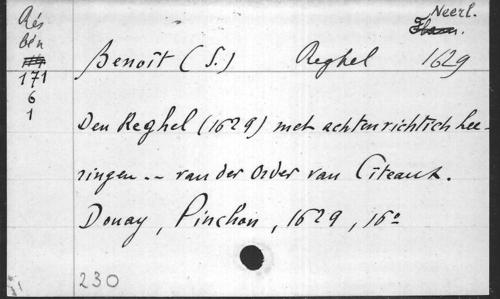 Neerl.
Rés
bén
171
6
1
Benoît (S.) Reghel 1629
Den Reghel (1629) met achtenrichtich lee-
ringen -- van der Order van Cîteaux.
Douay, Pinchon, 1629, 16º
230